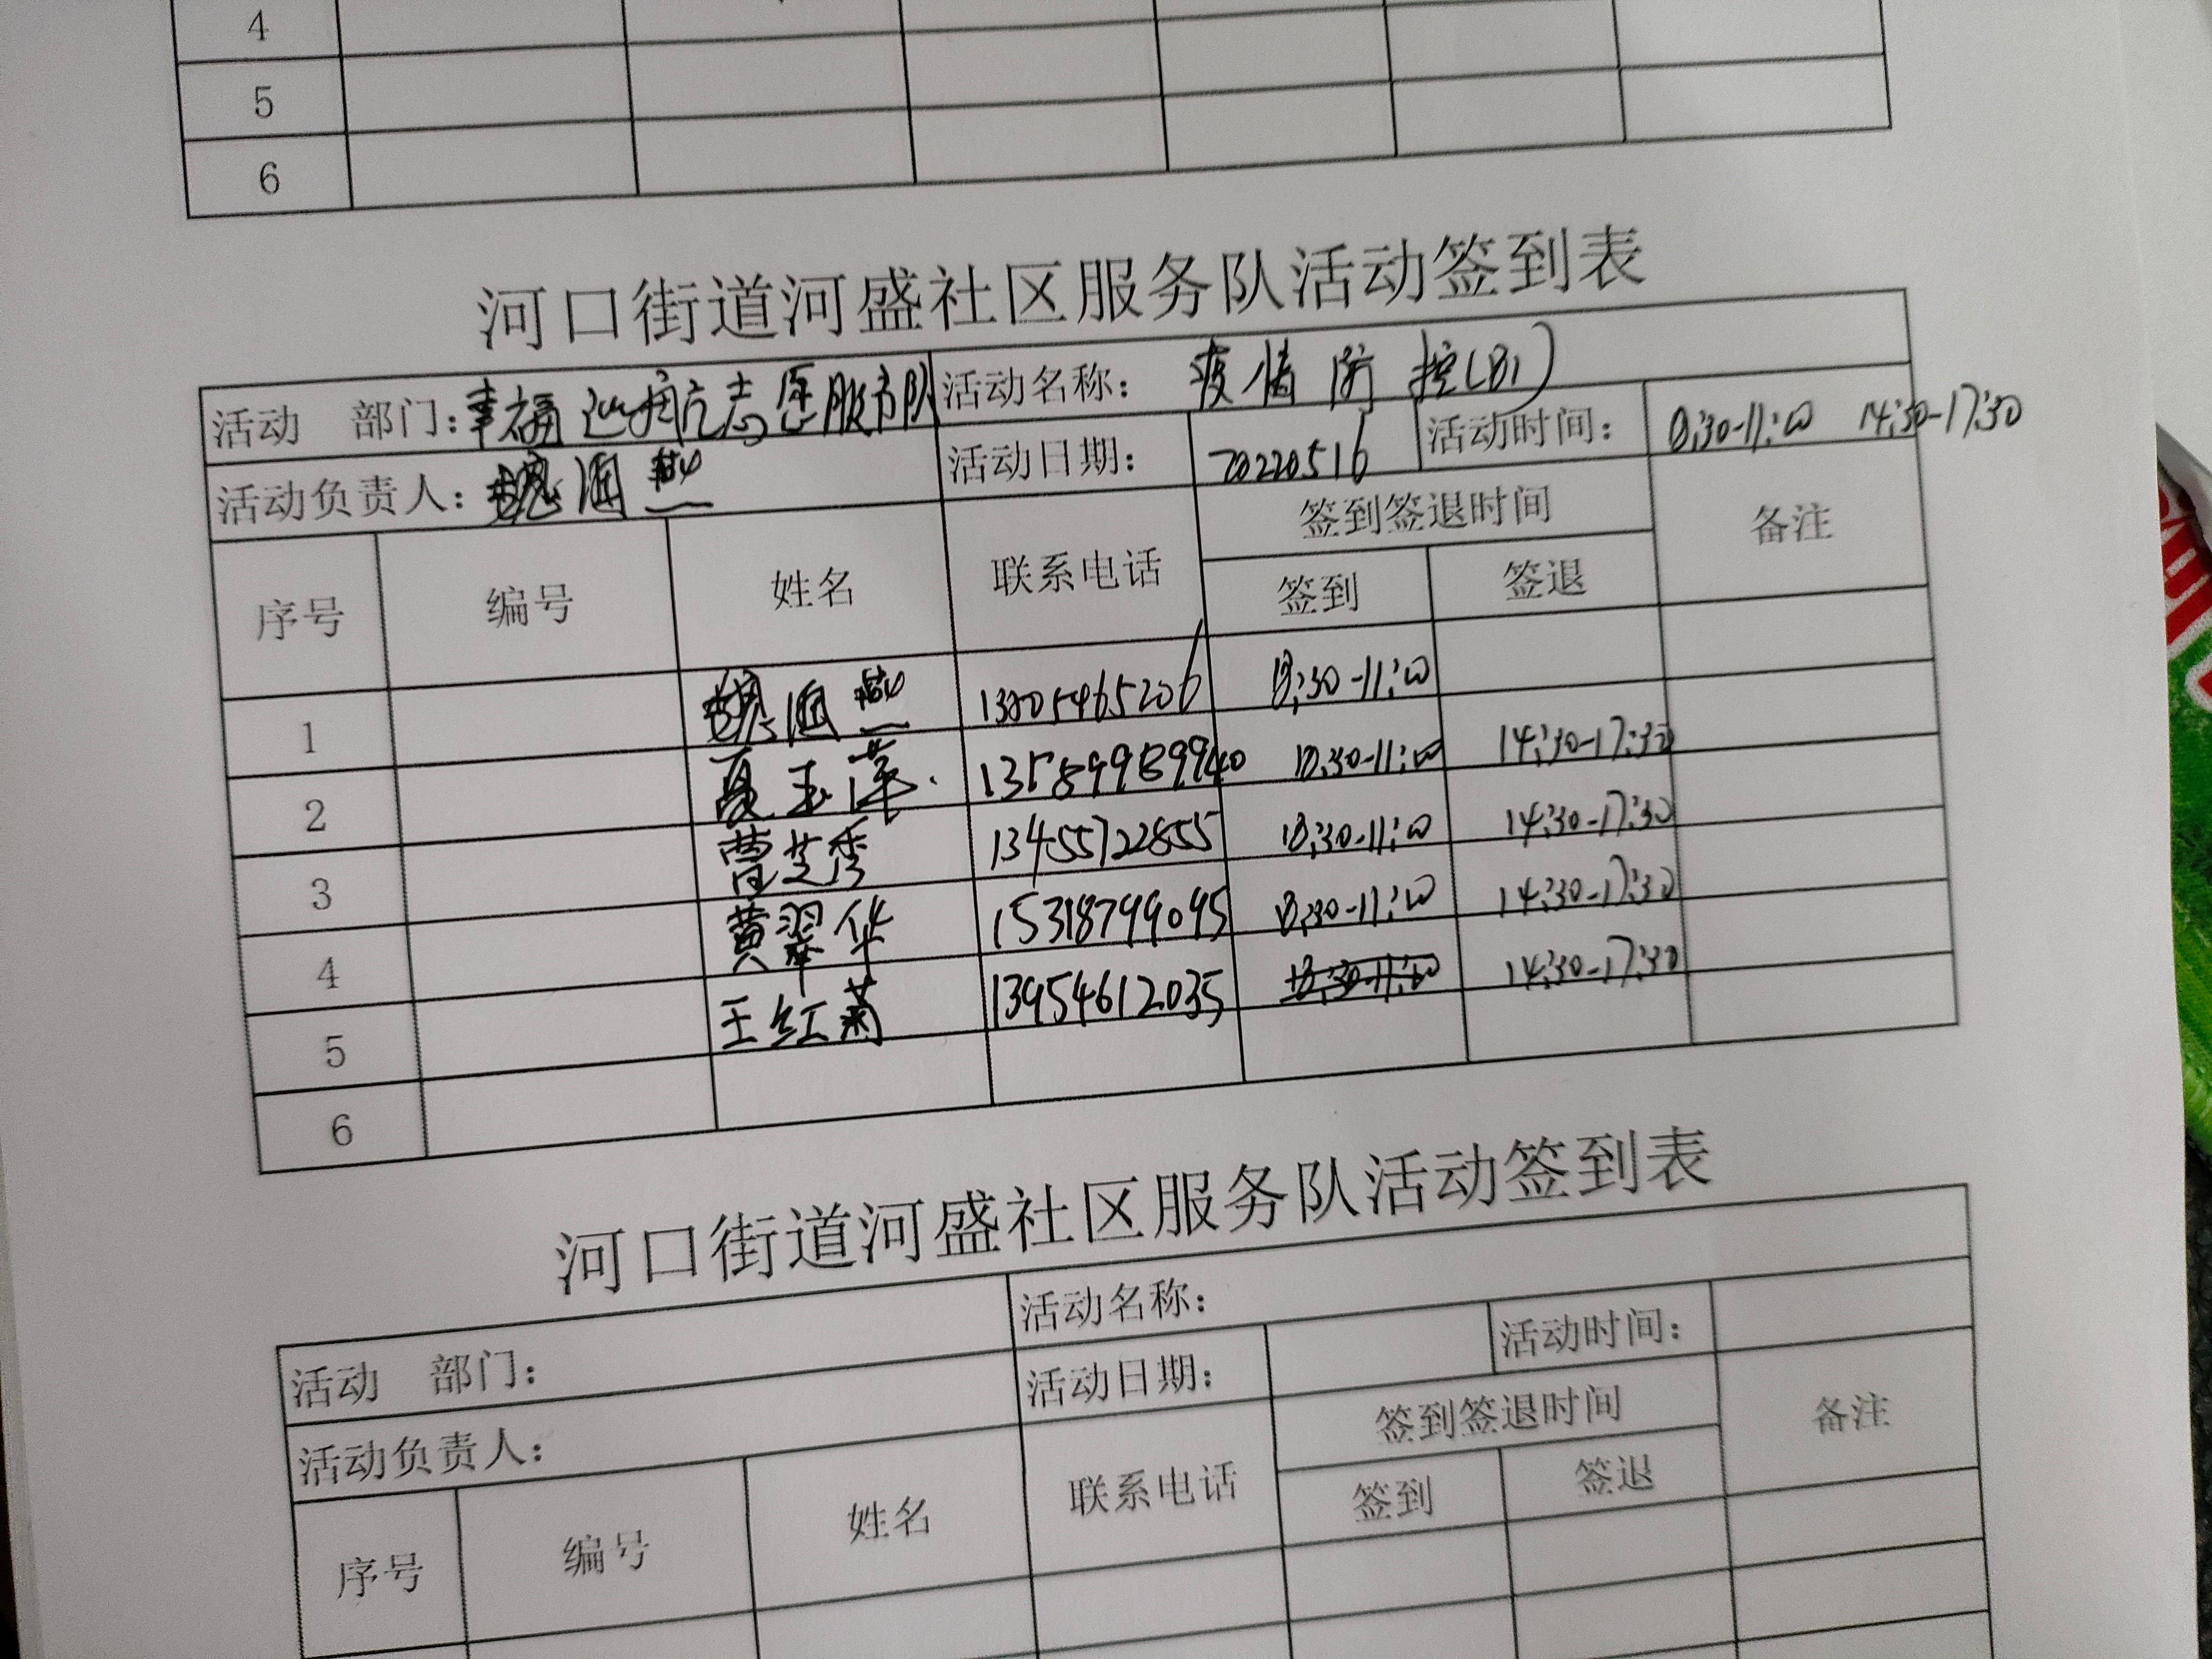 4
5
6
河口街道河盛社区服务队活动签到表
活动 部门：幸福 志愿服务队 活动名称： 疫情防控(B1)
活动负责人： 活动日期： 20220516 活动时间： 8:30-11:00 14:30-17:30
序号 编号 姓名 联系电话 签到签退时间 备注
签到 签退
1 13805465206 8:30-11:00
2 夏玉萍 8:30-11:00 14:30-17:30
3 曹芝秀 13455722855 8:30-11:00 14:30-17:30
4 黄翠华 15318799095 8:30-11:00 14:30-17:30
5 王红菊 13954612035 8:30-11:00 14:30-17:30
6
河口街道河盛社区服务队活动签到表
活动 部门： 活动名称：
活动负责人： 活动日期： 活动时间：
序号 编号 姓名 联系电话 签到签退时间 备注
签到 签退